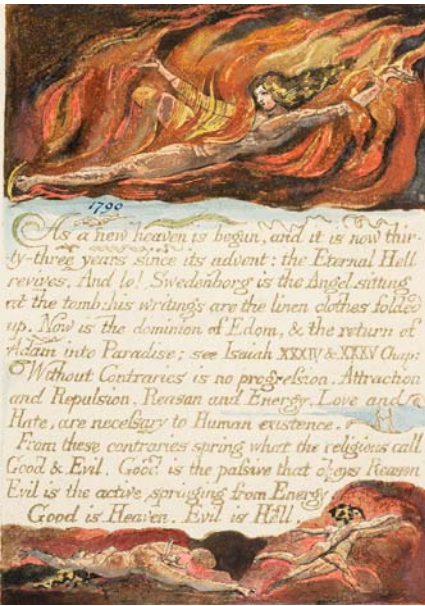 1790
As a new heaven is begun, and it is now thir-
ty-three years since its advent: the Eternal Hell
revives. And lo! Swedenborg is the Angel sitting
at the tomb: his writings are the linen clothes folded
up. Now is the dominion of Edom, & the return of
Adam into Paradise; see Isaiah XXXIV & XXXV Chap:
Without Contraries is no progression. Attraction
and Repulsion, Reason and Energy, Love and
Hate, are necessary to Human existence.
From these contraries spring what the religious call
Good & Evil. Good is the passive that obeys Reason
Evil is the active springing from Energy.
Good is Heaven. Evil is Hell.